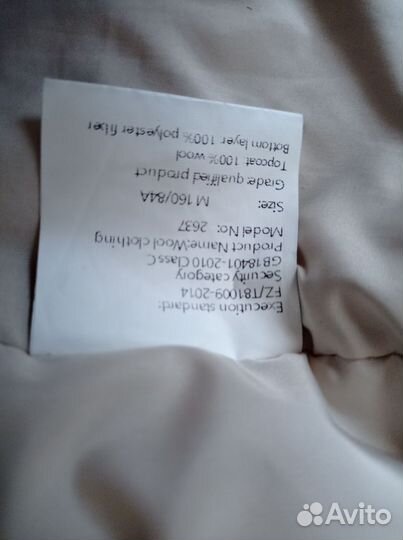 Execution standard:
FZ/T81009-2014
Security category
GB18401-2010 Class C
Product Name:Wool clothing
Model No: 2637
Size: M 160/84A
Grade: qualified product
Topcoat 100% wool
Bottom layer 100% polyester fiber
Avito